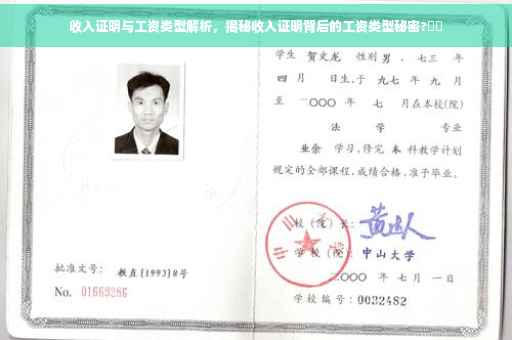 收入证明与工资类型解析，揭秘收入证明背后的工资类型秘密?
学生 贺文龙 性别 男 、七三 年
四 月 日生,于 九七 年 九 月
至 二〇〇〇 年 七 月在本校(院)
法 学 专业
业余 学习,修完 本 科教学计划
规定的全部课程,成绩合格,准予毕业。
校(院)长:
学 校(院): 中山大学
批准文号: 教直[1993]8号
二〇〇〇 年 七 月 一 日
No. 01669286
学校编号: 0032482